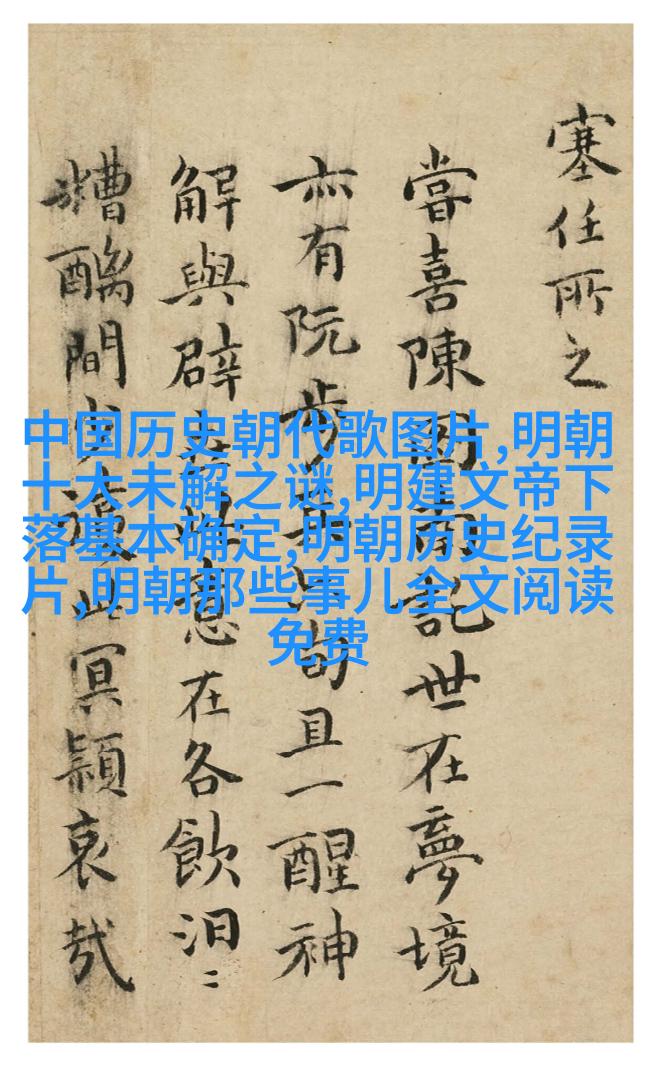 塞任所之
嘗喜陳圖南託世在夢境
亦有阮步兵且一醒神
解與辟意在各飲汨〻
糟醨間此冥穎哀哉
中国历史朝代歌图片,明朝
十大未解之谜,明建文帝下
落基本确定,明朝历史纪录
片,明朝那些事儿全文阅读
免费